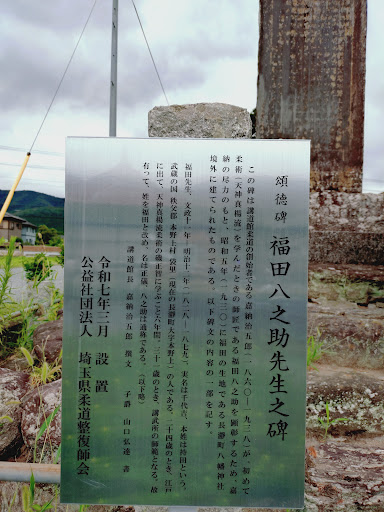 頌徳碑 福田八之助先生之碑
この碑は講道館柔道の創始者である嘉納治五郎（一八六〇―一九三八）が、初めて
柔術（天神真楊流）を学んだときの師匠である福田八之助を顕彰するため、嘉
納の尽力のもと、昭和五年（一九三〇）に福田の生地である長瀞町八幡神社
境外に建てられたものである。以下碑文の内容の一部を記す。
福田先生、文政十一年―明治十二年（一八二八―一八七九）、実名は千代六、本姓は持田という。
武蔵の国 秩父郡 本野上村 袋里（現在の長瀞町大字本野上）の人である。二十四歳のとき、江戸
に出て、天神真楊流柔術の磯正智に学ぶこと六年間、三十歳のとき、講武所の師範となる。故
有って、姓を福田と改め、名は正儀、八之助は通称である。（以下略）
講道館長 嘉納治五郎 撰文 子爵 山口弘達 書
令和七年三月 設置
公益社団法人 埼玉県柔道整復師会